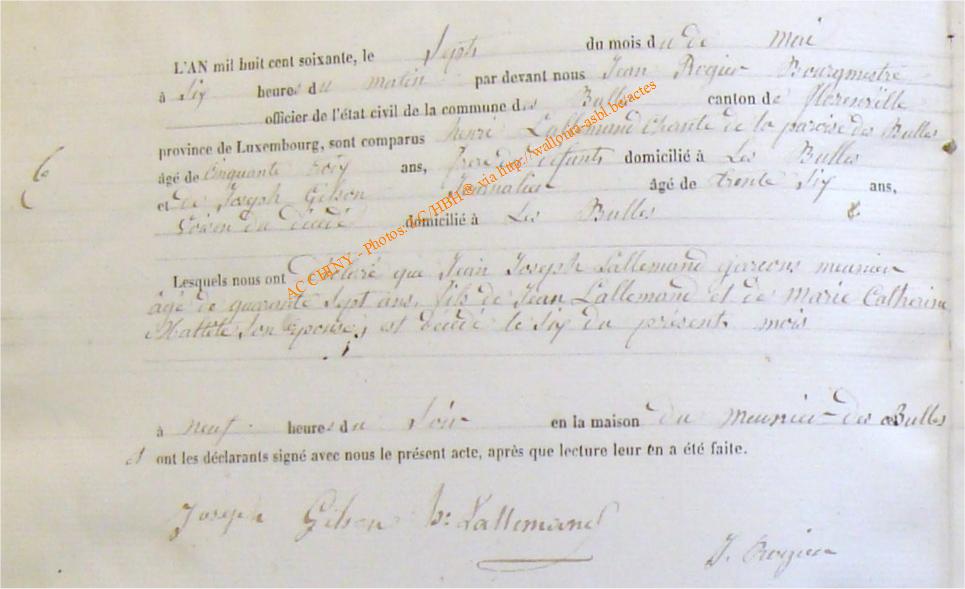 L'AN mil huit cent soixante, le Sept du mois du de Mai
à Six heures du matin par devant nous Jean Rogier Bourgmestre
officier de l'état civil de la commune des Bulles canton de Florenville
province de Luxembourg, sont comparus henri Lallemand Chantre de la paroise des Bulles
6
âgé de Cinquante ans, frere du défunts domicilié à Les Bulles
et de Joseph Gilson Journalier âgé de trente Six ans,
Voisin du décédé domicilié à Les Bulles
Lesquels nous ont déclaré que Jean Joseph Lallemand garçons meunier
âgé de quarante Sept ans, fils de Jean Lallemand et de Marie Catherine
son épouse, est décédé le Six du présent mois
à neuf heures du Soir en la maison du meunier des Bulles
et ont les déclarants signé avec nous le présent acte, après que lecture leur en a été faite.
Joseph Gilson h: Lallemand
J. Rogier
AC CHINY - Photos: LC/HBH® via http://wallonia-asbl.be/actes